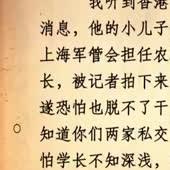 我听到香港
消息，他的小儿子
上海军管会担任农
长，被记者拍下来
遂恐怕也脱不了干
知道你们两家私交
怕学长不知深浅，